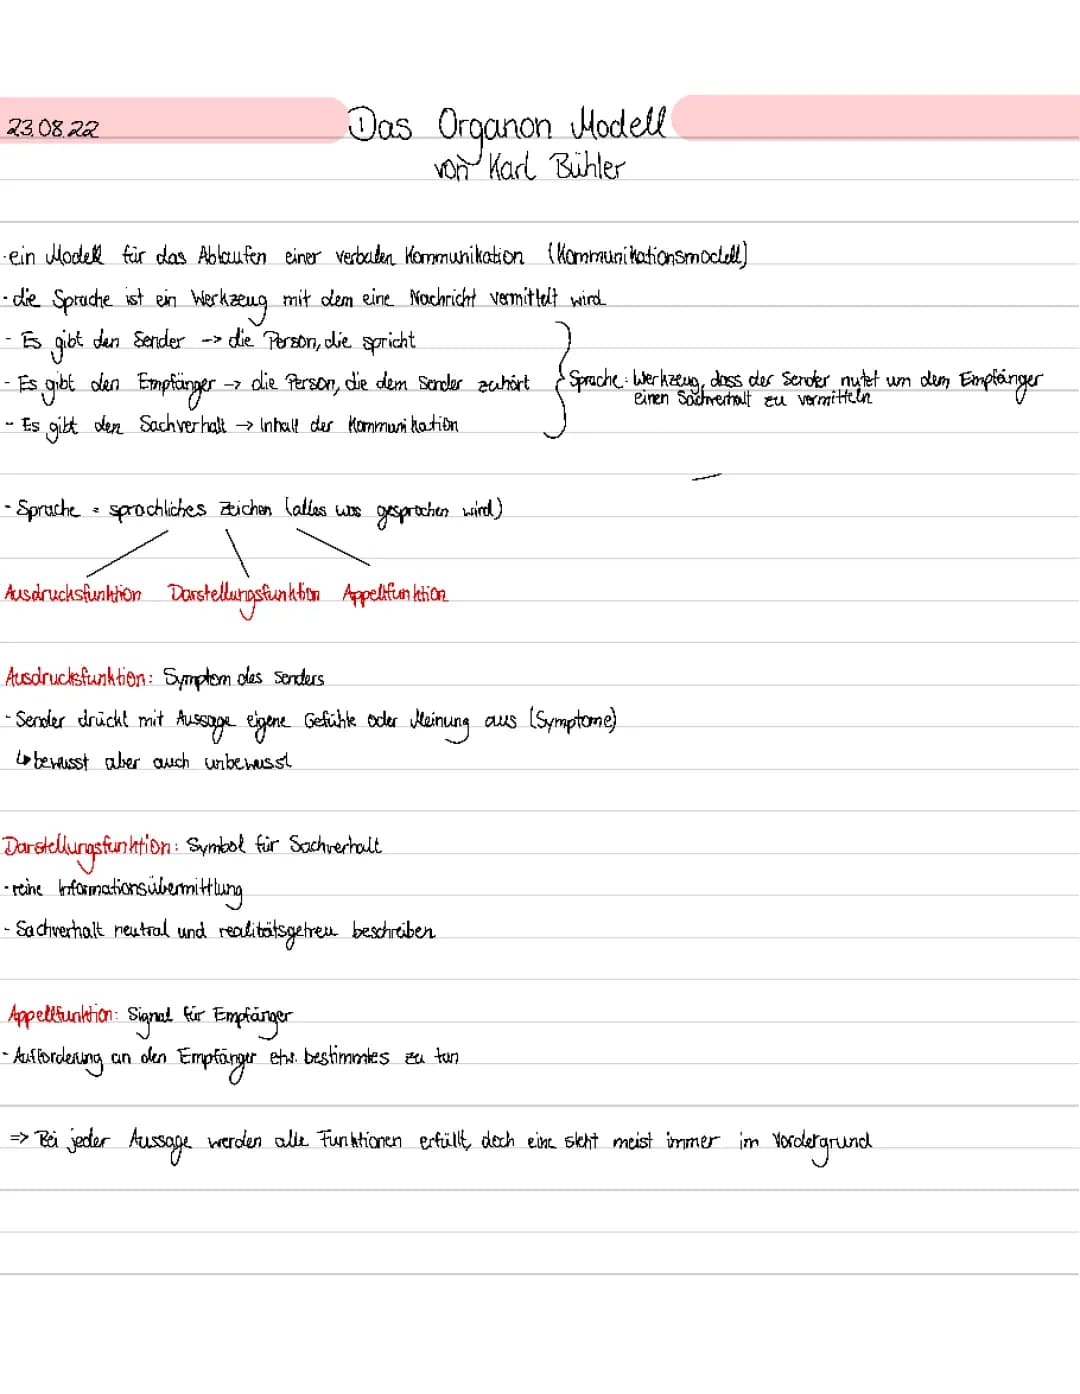 23.08.22
Das Organon Modell
von Karl Bühler
- ein Modell für das Ablaufen einer verbalen Kommunikation (Kommunikationsmodell)
- die Sprache ist ein Werkzeug mit dem eine Nachricht vermittelt wird
- Es gibt den Sender -> die Person, die spricht
- Es gibt den Empfänger -> die Person, die dem Sender zuhört
- Es gibt den Sachverhalt -> Inhalt der Kommunikation
Sprache: Werkzeug, dass der Sender nutzt um dem Empfänger
einen Sachverhalt zu vermitteln
- Sprache = sprachliches Zeichen (alles was gesprochen wird)
Ausdrucksfunktion Darstellungsfunktion Appellfunktion
Ausdrucksfunktion: Symptom des Senders
- Sender drückt mit Aussage eigene Gefühle oder Meinung aus (Symptome)
↳ bewusst aber auch unbewusst
Darstellungsfunktion: Symbol für Sachverhalt
- reine Informationsübermittlung
- Sachverhalt neutral und realitätsgetreu beschreiben
Appellfunktion: Signal für Empfänger
- Aufforderung an den Empfänger etw. bestimmtes zu tun
=> Bei jeder Aussage werden alle Funktionen erfüllt, doch eine steht meist immer im Vordergrund